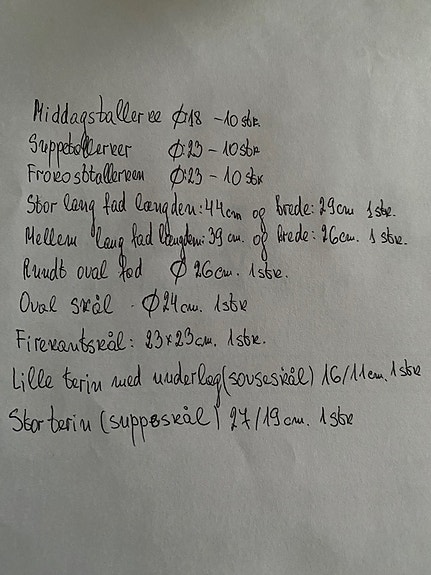 Middagstallerke Ø:18 - 10 stk
Suppetallerker Ø:23 - 10 stk
Frokosttallerken Ø:23 - 10 stk
Stor lang fad længden: 44 cm og brede: 29 cm 1 stk.
Mellem lang fad længden: 39 cm. og brede: 26 cm. 1 stk.
Rundt oval fad Ø 26 cm. 1 stk.
Oval skål - Ø 24 cm. 1 stk
Firekantskål: 23x23 cm. 1 stk.
Lille terin med underlag (sovseskål) 16/11 cm. 1 stk
Stor terin (suppeskål) 27/19 cm. 1 stk